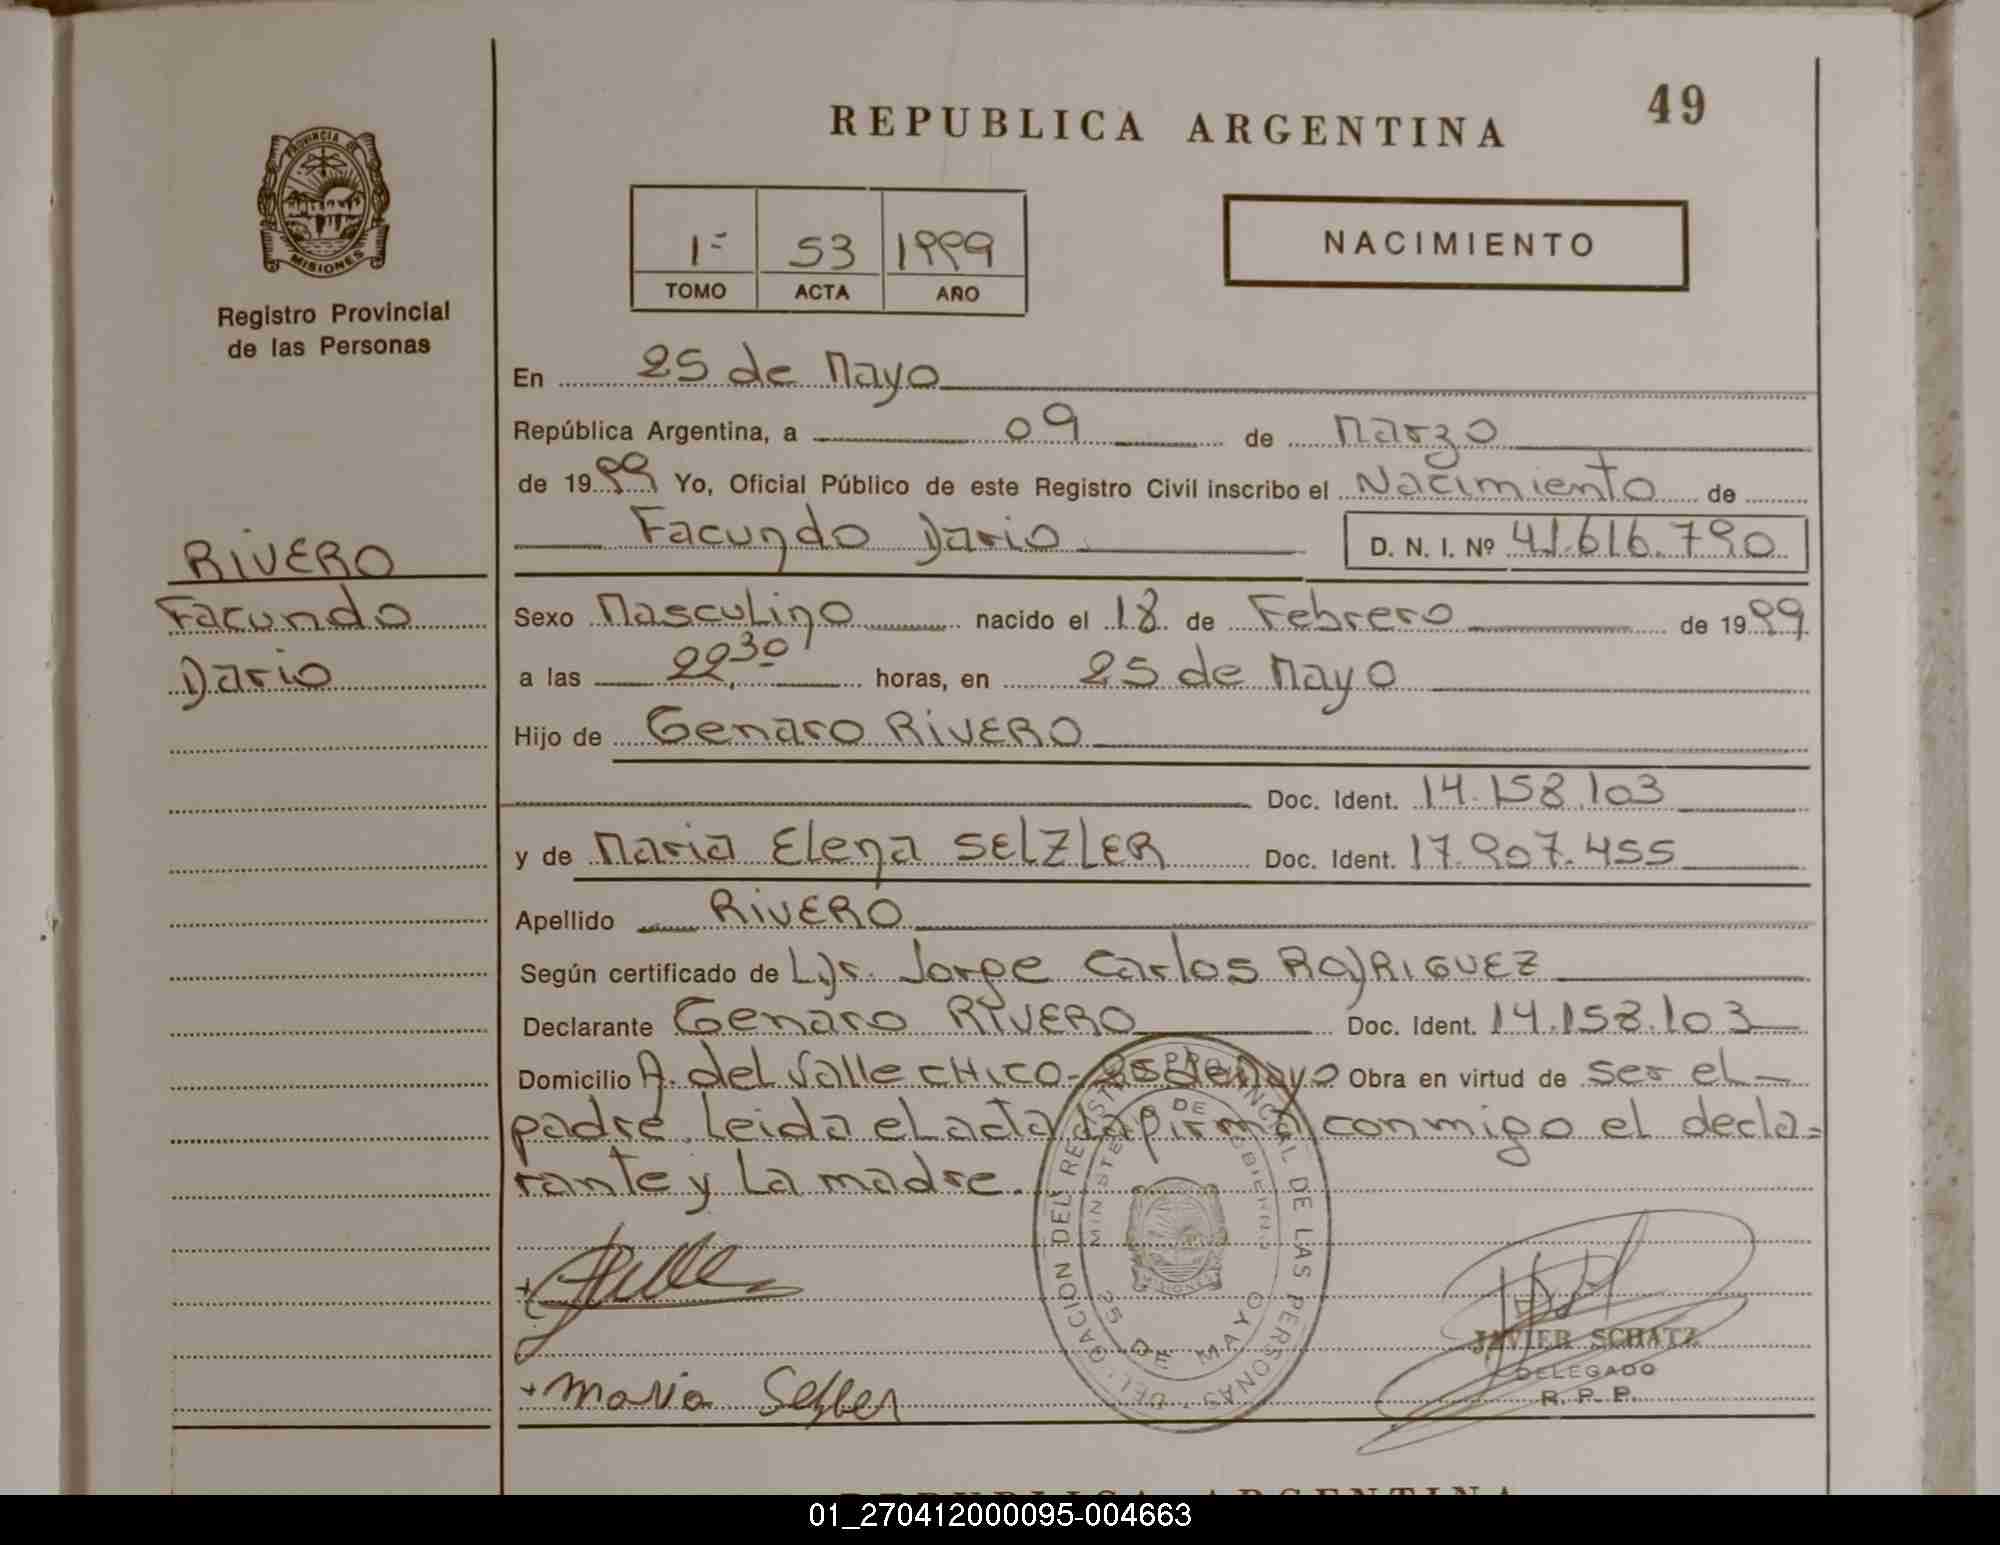 REPUBLICA ARGENTINA
49
PROVINCIA DE
MISIONES
Registro Provincial
de las Personas
1º 53 1999
TOMO ACTA AÑO
NACIMIENTO
En 25 de Mayo
República Argentina, a 09 de Marzo
de 1999 Yo, Oficial Público de este Registro Civil inscribo el Nacimiento de
Facundo Dario D. N. I. Nº 41.616.790
RIVERO
Facundo
Dario
Sexo Masculino nacido el 18 de Febrero de 1999
a las 22,30 horas, en 25 de Mayo
Hijo de Genaro RIVERO
Doc. Ident. 14.158.103
y de Maria Elena SELZLER Doc. Ident. 17.907.455
Apellido RIVERO
Según certificado de Dr. Jorge Carlos RODRIGUEZ
Declarante Genaro RIVERO Doc. Ident. 14.158.103
Domicilio A. del Valle CHICO-25 de Mayo Obra en virtud de ser el
padre. Leida el acta la firma conmigo el decla-
rante y La madre.
DELEGACION DEL REGISTRO PROVINCIAL DE LAS PERSONAS
MINISTERIO DE GOBIERNO
25 DE MAYO
JAVIER SCHATZ
DELEGADO
R. P. P.
Maria Selzler
REPUBLICA ARGENTINA
01_270412000095-004663